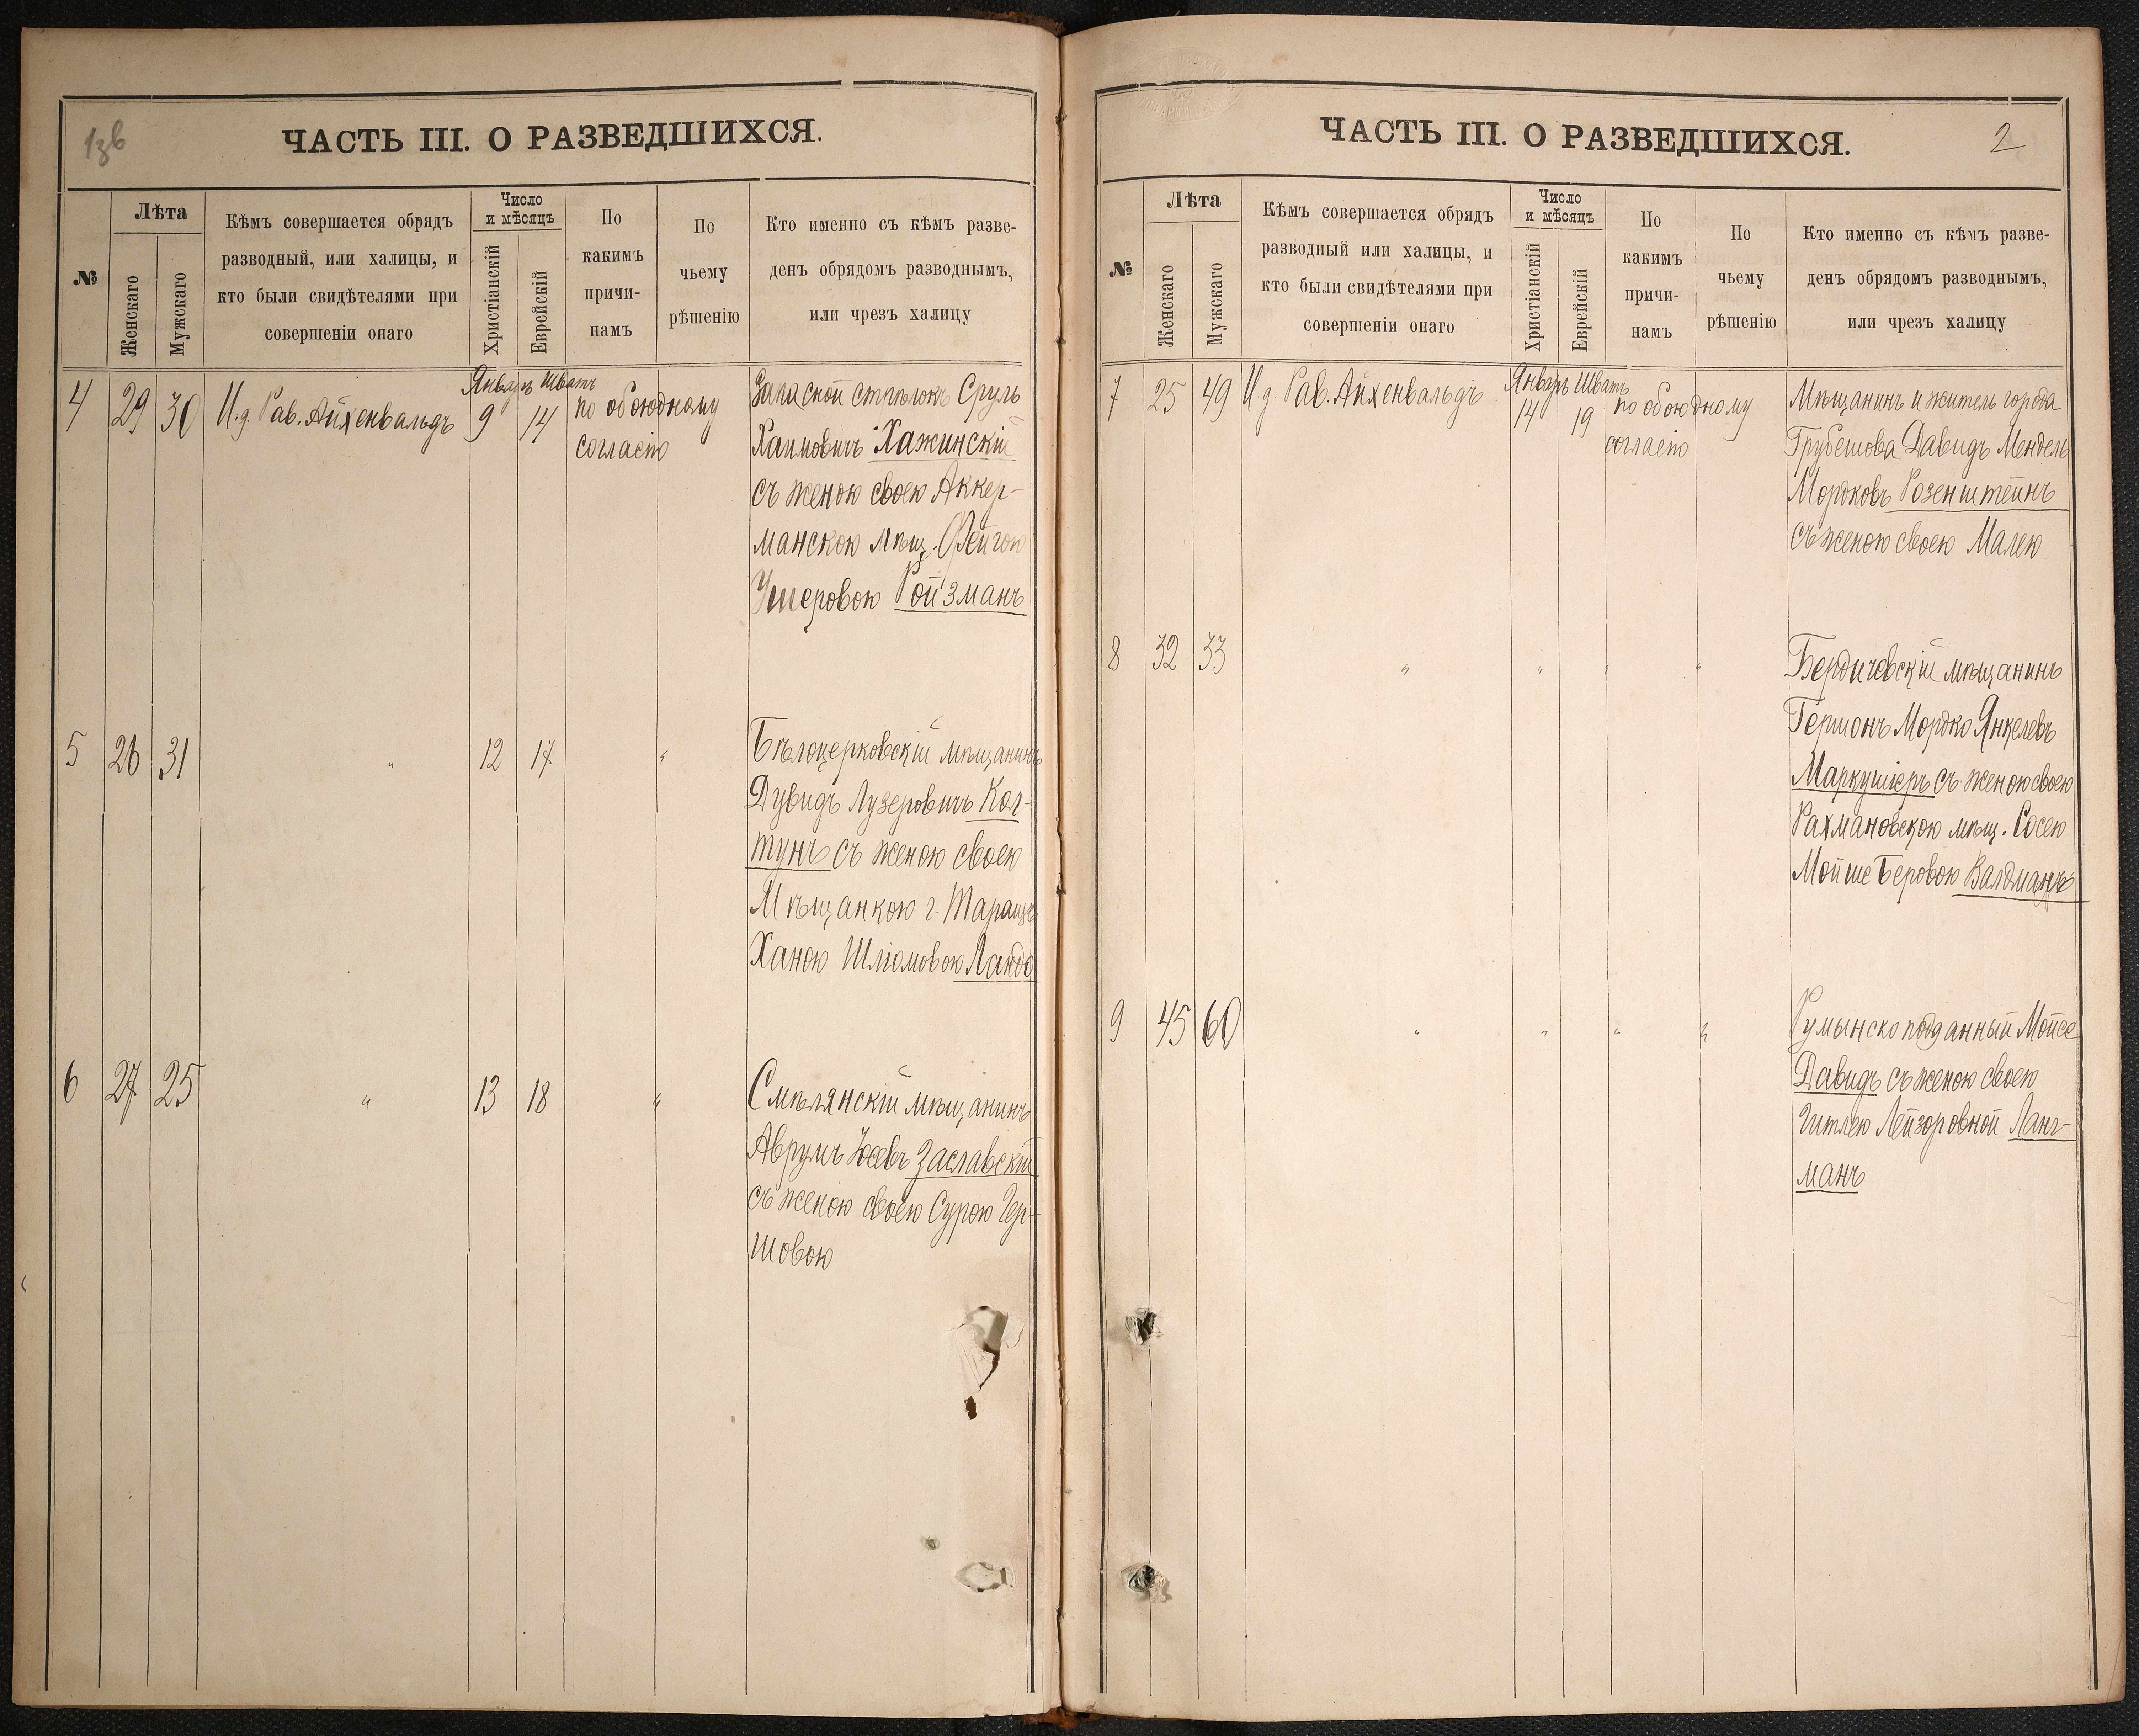 1зв
ЧАСТЬ III. О РАЗВЕДШИХСЯ.
№
Лѣта
Женскаго
Мужскаго
Кѣмъ совершается обрядъ
разводный, или халицы, и
кто были свидѣтелями при
совершеніи онаго
Число
и мѣсяцъ
Христіанскій
Еврейскій
По
какимъ
причи-
намъ
По
чьему
рѣшенію
Кто именно съ кѣмъ разве-
денъ обрядомъ разводнымъ,
или чрезъ халицу
4 29 30 И.д. Рав. Айхенвальдъ
Январь Шватъ
9 14
по обоюдному
согласію
Запасной стрѣлокъ Сруль
Хаимовичъ Хажинскій
съ женою своею Аккер-
манскою мѣщ. Фейгою
Ушеровою Ройзманъ
5 26 31 " 12 17 "
Бѣлоцерковскій мѣщанинъ
Дувидъ Лузеровичъ Кол-
тунъ съ женою своею
Мѣщанкою г. Таращъ
Ханою Шліомовою Ландо
6 27 25 " 13 18 "
Смѣлянскій мѣщанинъ
Аврумъ Заславскій
съ женою своею Сурою Гер-
шовою
ЧАСТЬ III. О РАЗВЕДШИХСЯ.
2
№
Лѣта
Женскаго
Мужскаго
Кѣмъ совершается обрядъ
разводный или халицы, и
кто были свидѣтелями при
совершеніи онаго
Число
и мѣсяцъ
Христіанскій
Еврейскій
По
какимъ
причи-
намъ
По
чьему
рѣшенію
Кто именно съ кѣмъ разве-
денъ обрядомъ разводнымъ,
или чрезъ халицу
7 25 49 И.д. Рав. Айхенвальдъ
Январь Шватъ
14 19
по обоюдному
согласію
Мѣщанинъ и житель города
Грубешова Давидъ Мендель
Мордковъ Розенштейнъ
съ женою своею Малею
8 32 33 " " " "
Бердичевскій мѣщанинъ
Гершонъ Мордко Янкелевъ
Маркушіеръ съ женою своею
Рахмановскою мѣщ. Сосею
Мойше Беровою Валдманъ
9 45 60 " " " "
Румынско подданный Мойсе
Давидъ съ женою своею
Гитлею Лейзоровной Ланг-
манъ